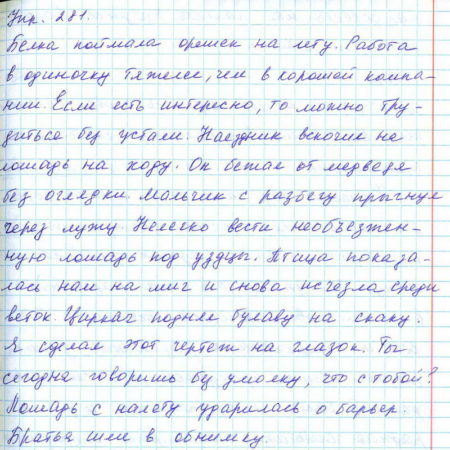 Упр. 281.
Белка поймала орешек на лету. Работа
в одиночку тяжелее, чем в хорошей компа-
нии. Если есть интересно, то можно тру-
диться без устали. Наездник вскочил на
лошадь на ходу. Он бежал от медведя
без оглядки. Мальчик с разбегу прыгнул
через лужу. Нелегко вести необъезжен-
ную лошадь под уздцы. Птица показа-
лась нам на миг и снова исчезла среди
веток. Циркач поднял булаву на скаку.
Я сделал этот чертеж на глазок. Ты
сегодня говоришь без умолку, что с тобой?
Лошадь с налету ударилась о барьер.
Братья шли в обнимку.